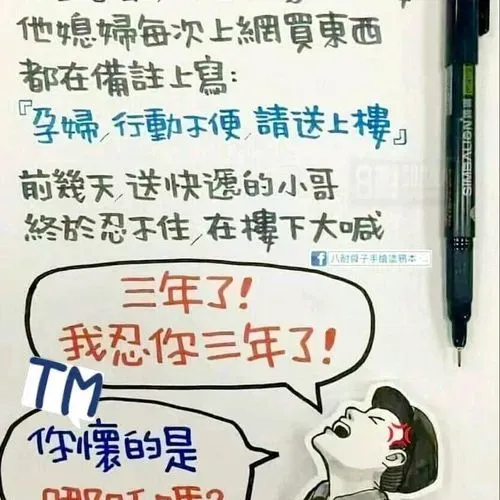 他媳婦每次上網買東西
都在備註上寫:
『孕婦,行動不便,請送上樓』
前幾天,送快遞的小哥
終於忍不住,在樓下大喊
八耐舜子手繪塗鴉本
三年了!
我忍你三年了!
TM
你懷的是
SIMBALION